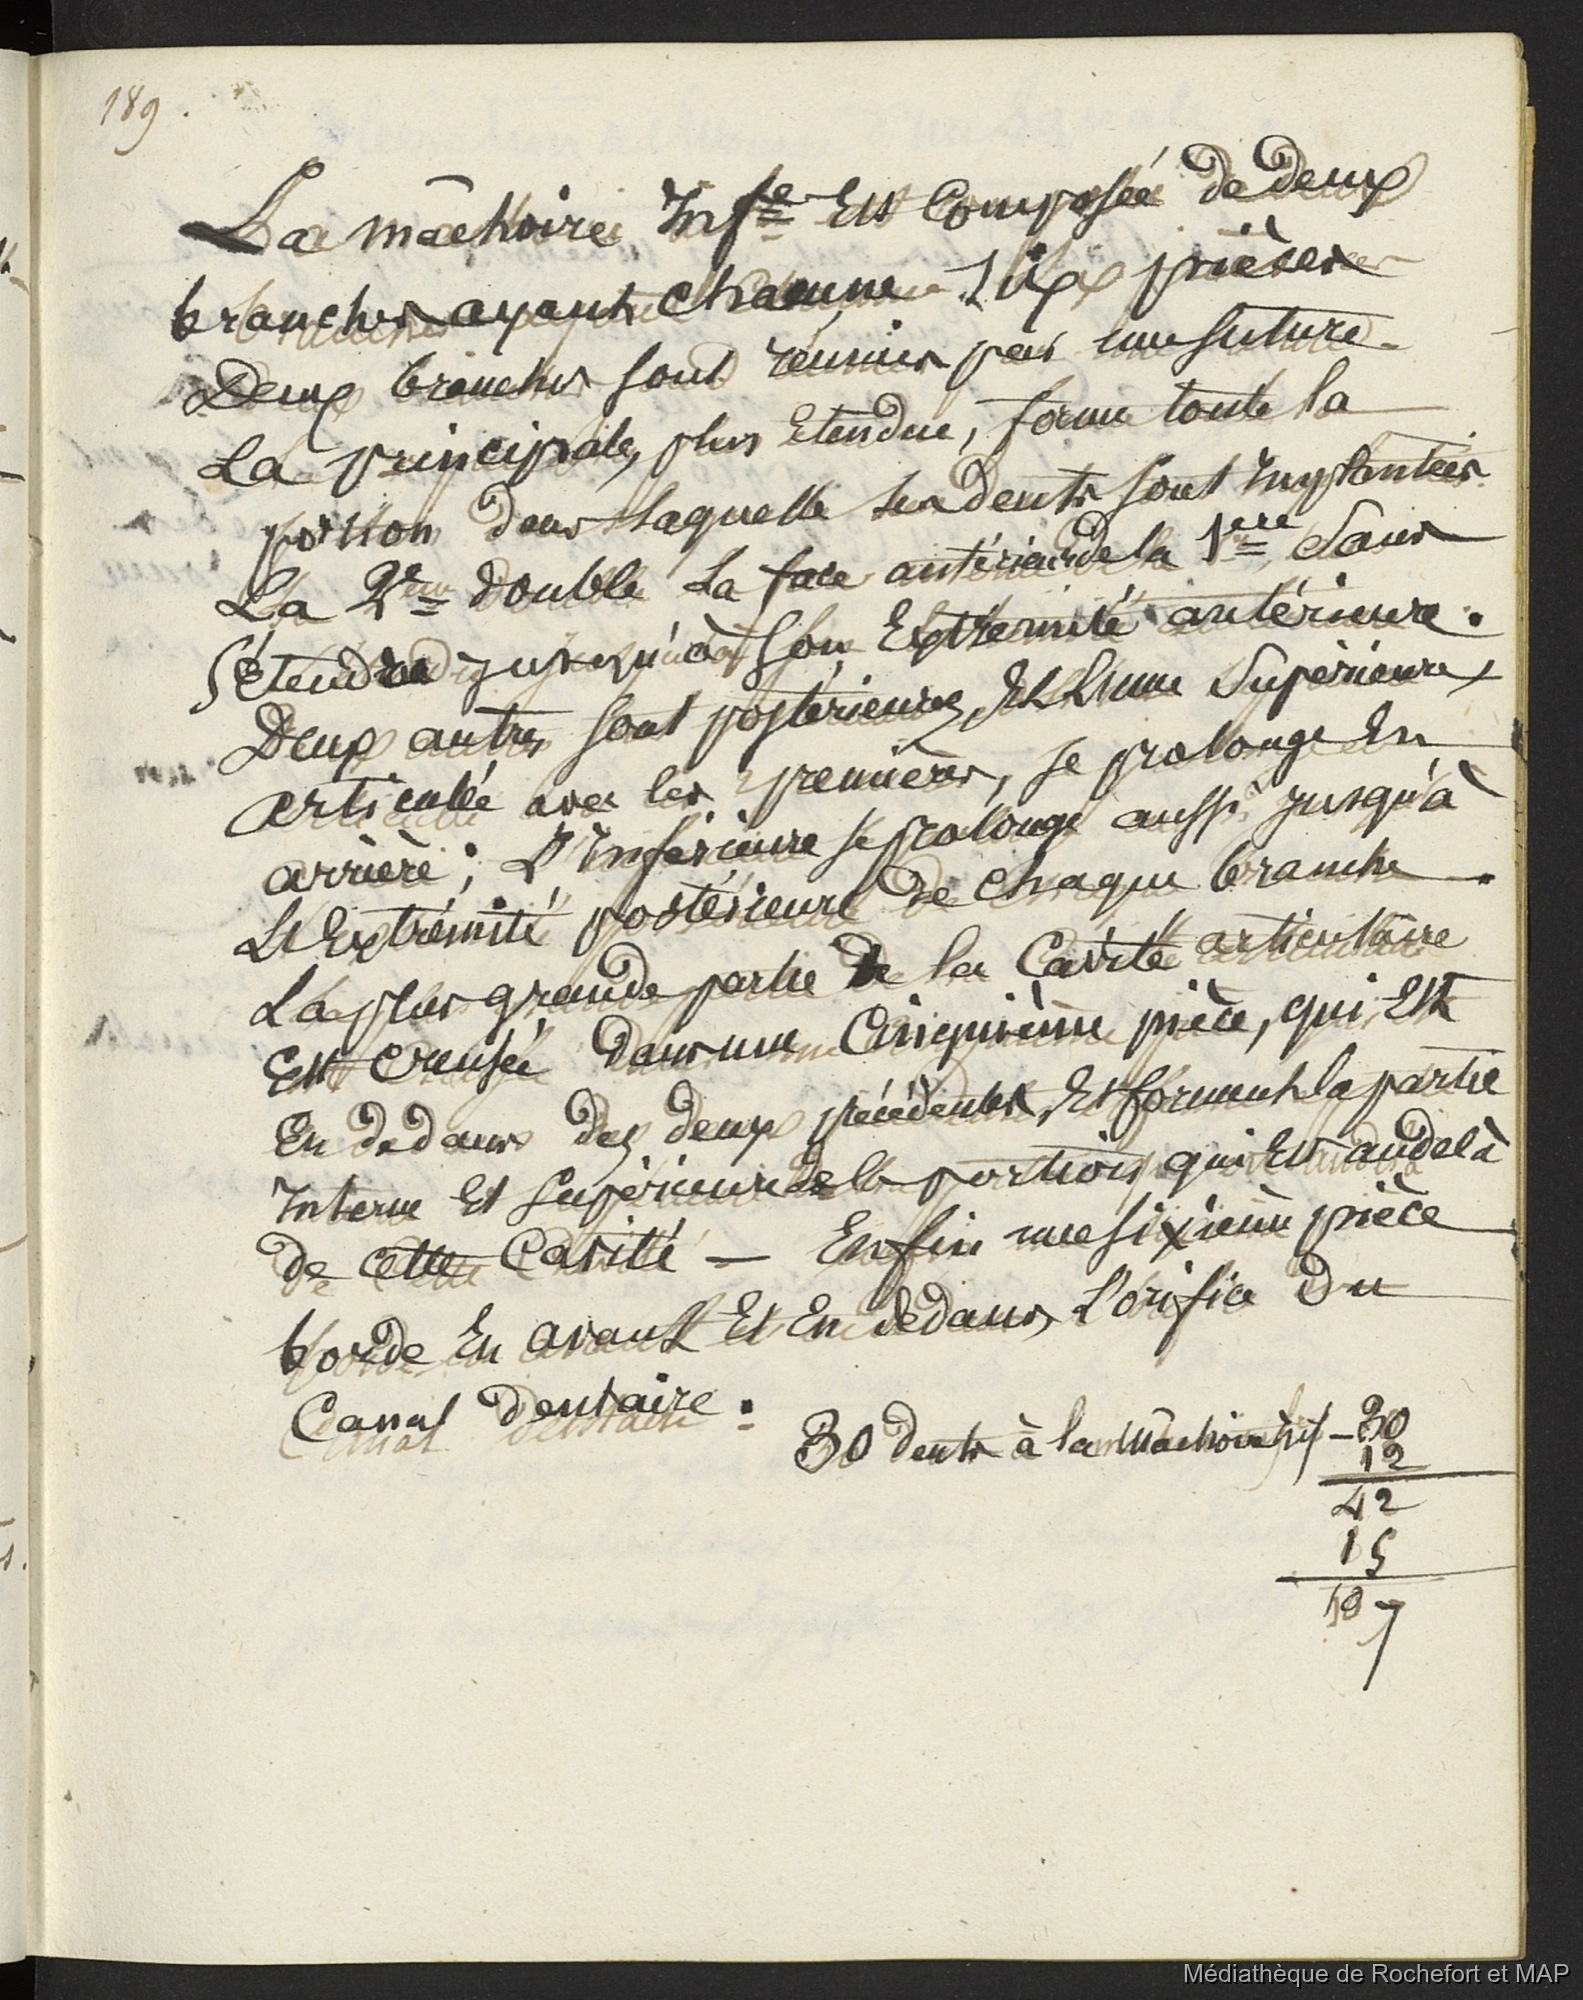 189.
La mâchoire Infe Est Composée de deux
branches ayant chacune Six pièces
Deux branches sont réunies par une suture.
La principale, plus Etendue, forme toute la
portion dans laquelle les dents sont Implantées.
La 2eme double la face antérieure de la 1ere, Sans
S'étendre jusqu'à son Extrémité antérieure.
Deux autres sont postérieures, Et L'une Supérieure
articulée avec les premières, se prolonge En
arrière; L'Inférieure se prolonge aussi jusqu'à
L'Extrémité postérieure de chaque branche.
La plus grande partie de la Cavité articulaire
Est creusée dans une Cinquième pièce, qui Est
En dedans des deux précédentes, Et forment la partie
Interne Et Supérieure de la portion qui Est au delà
de cette Cavité — Enfin une sixième pièce
borde En avant Et En dedans, L'orifice du
Canal dentaire.
30 dents à la mâchoire Inf — 30
12
42
15
107
Médiathèque de Rochefort et MAP